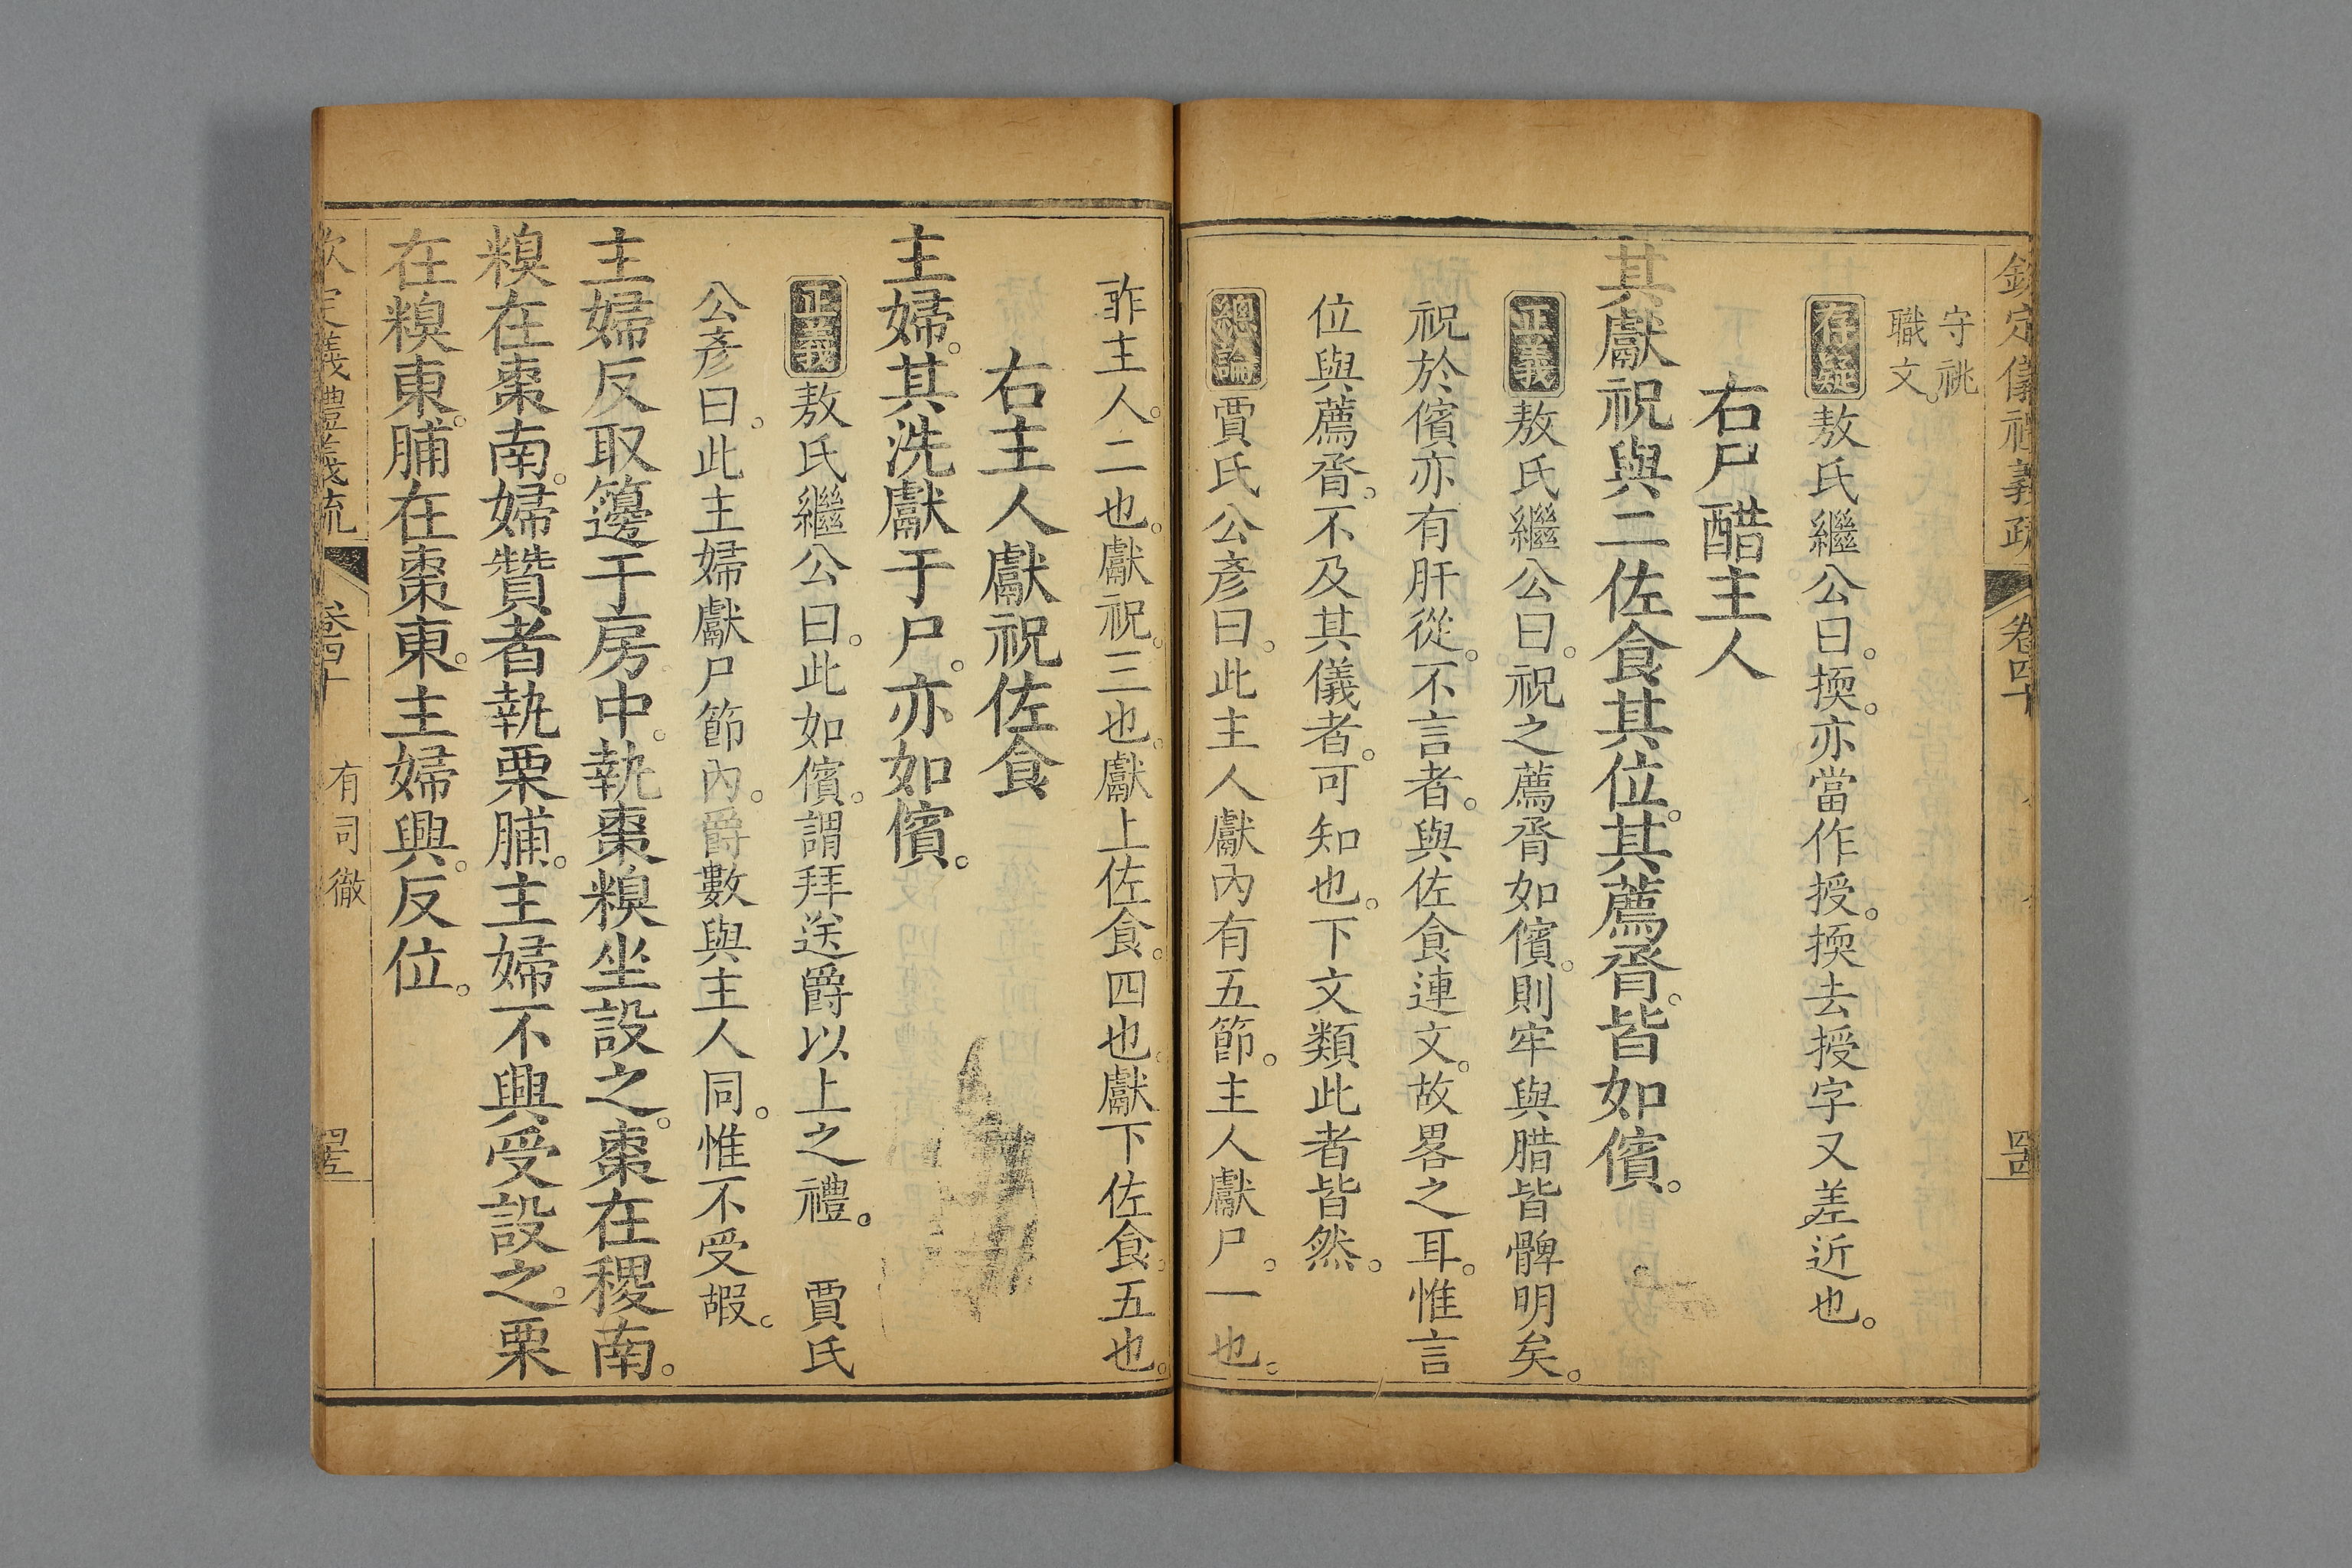 欽定儀禮義疏 卷四十
守祧
職文。
存疑 敖氏繼公曰。揳。亦當作授。揳去授字又差近也。
右尸醋主人
其獻祝與二佐食其位。其薦脀。皆如儐。
正義 敖氏繼公曰。祝之薦脀如儐。則牢與腊皆髀明矣。
祝於儐亦有肝從。不言者。與佐食連文。故畧之耳。惟言
位與薦脀。不及其儀者。可知也。下文類此者皆然。
總論 賈氏公彥曰。此主人獻內有五節。主人獻尸。一也。
酢主人。二也。獻祝。三也。獻上佐食。四也。獻下佐食。五也。
右主人獻祝佐食
主婦。其洗獻于尸。亦如儐。
正義 敖氏繼公曰。此如儐。謂拜送爵以上之禮。 賈氏
公彥曰。此主婦獻尸節內。爵數與主人同。惟不受嘏。
主婦反取籩于房中。執棗糗坐設之。棗在稷南。
糗在棗南。婦贊者執栗脯。主婦不興受設之。栗
在糗東。脯在棗東。主婦興。反位。
欽定儀禮義疏 卷四十 有司徹